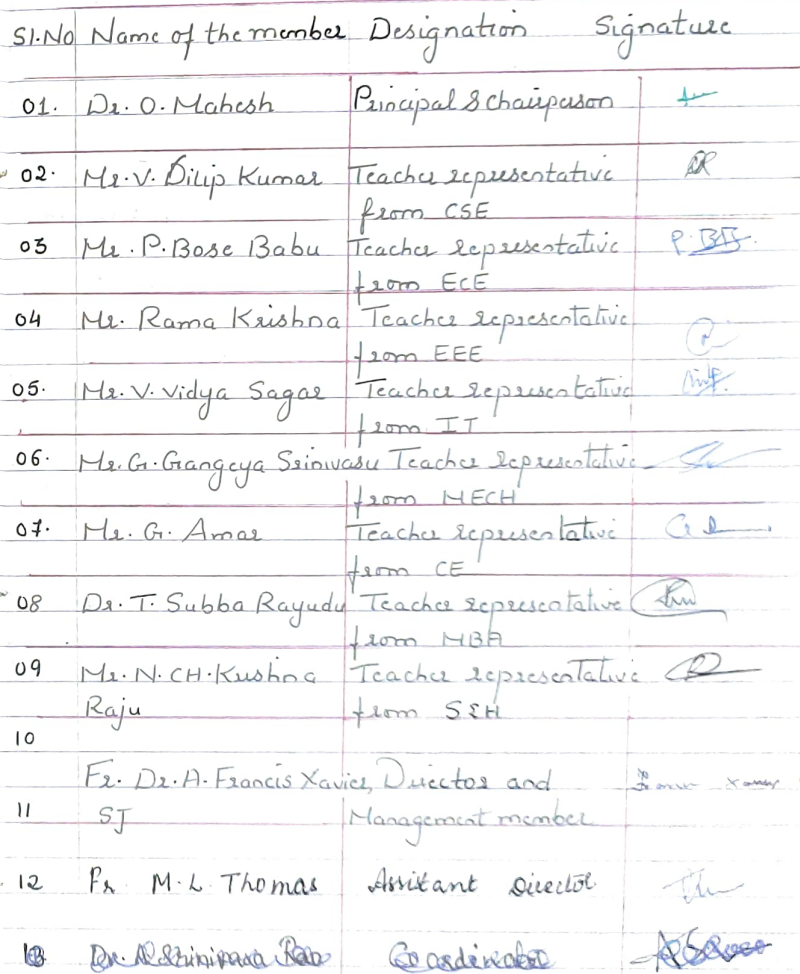 Sl.No Name of the member Designation Signature
01. Dr. O. Mahesh Principal & chairperson
02. Mr. V. Dilip Kumar Teacher representative
from CSE
03 Mr. P. Bose Babu Teacher representative
from ECE
04 Mr. Rama Krishna Teacher representative
from EEE
05. Mr. V. Vidya Sagar Teacher representative
from IT
06. Mr. G. Gangeya Srinivasu Teacher representative
from MECH
07. Mr. G. Amar Teacher representative
from CE
08 Dr. T. Subba Rayudu Teacher representative
from MBA
09 Mr. N. CH. Krishna Teacher representative
Raju from S&H
10
Fr. Dr. A. Francis Xavier, Director and
11 SJ Management member
12 Fr M.L Thomas Assistant Director
13 Dr. Srinivasa Rao Coordinator